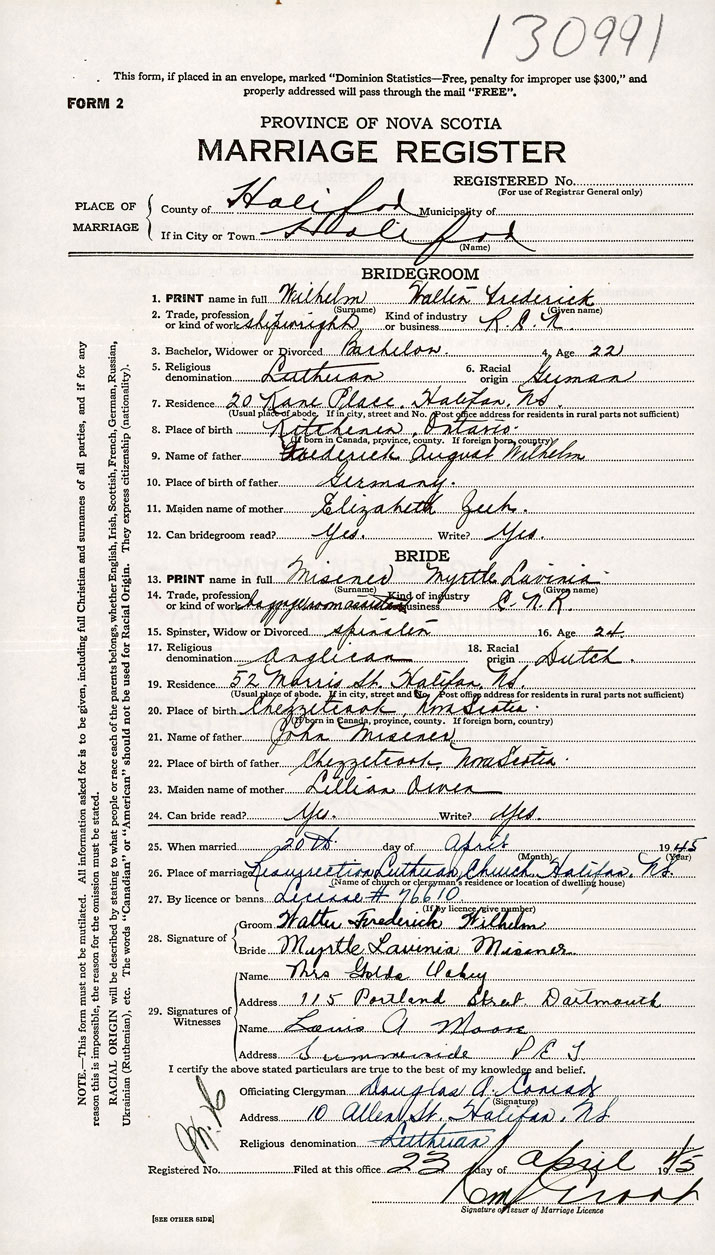 130991
This form, if placed in an envelope, marked "Dominion Statistics—Free, penalty for improper use $300," and
properly addressed will pass through the mail "FREE".
FORM 2
PROVINCE OF NOVA SCOTIA
MARRIAGE REGISTER
REGISTERED No.
(For use of Registrar General only)
PLACE OF MARRIAGE
County of Halifax Municipality of
If in City or Town Halifax
(Name)
BRIDEGROOM
1. PRINT name in full Wilhelm Walter Frederick
(Surname) (Given name)
2. Trade, profession or kind of work shipwright Kind of industry or business R.C.N.
3. Bachelor, Widower or Divorced Bachelor. 4. Age 22
5. Religious denomination Lutheran 6. Racial origin German
7. Residence 20 Kane Place, Halifax, N.S.
(Usual place of abode. If in city, street and No. Post office address for residents in rural parts not sufficient)
8. Place of birth Kitchener, Ontario.
(If born in Canada, province, county. If foreign born, country)
9. Name of father Frederick August Wilhelm
10. Place of birth of father Germany.
11. Maiden name of mother Elizabeth
12. Can bridegroom read? Yes. Write? Yes.
BRIDE
13. PRINT name in full Misener Myrtle Lavinia
(Surname) (Given name)
14. Trade, profession or kind of work baggageroom assistant Kind of industry business C.N.R.
15. Spinster, Widow or Divorced spinster 16. Age 24.
17. Religious denomination Anglican 18. Racial origin Dutch.
19. Residence 52 Morris St. Halifax, N.S.
(Usual place of abode. If in city, street and No. Post office address for residents in rural parts not sufficient)
20. Place of birth Chezzetcook, Nova Scotia.
(If born in Canada, province, county. If foreign born, country)
21. Name of father John Misener
22. Place of birth of father Chezzetcook, Nova Scotia.
23. Maiden name of mother Lillian
24. Can bride read? Yes. Write? Yes.
25. When married 20th. day of April 1945
(Month) (Year)
26. Place of marriage Resurrection Lutheran Church, Halifax, N.S.
(Name of church or clergyman's residence or location of dwelling house)
27. By licence or banns License # 76610
(If by licence give number)
28. Signature of
Groom Walter Frederick Wilhelm
Bride Myrtle Lavinia Misener.
29. Signatures of Witnesses
Name Mrs Golda
Address 115 Portland Street Dartmouth
Name Louis A Moore
Address Summerside P.E.I
I certify the above stated particulars are true to the best of my knowledge and belief.
Officiating Clergyman Douglas A. Conrad
(Signature)
Address 10 Allen St. Halifax, N.S
Religious denomination Lutheran
Registered No. Filed at this office 23 day of April 1945
Signature of Issuer of Marriage Licence
[SEE OTHER SIDE]
NOTE.—This form must not be mutilated. All information asked for is to be given, including full Christian and surnames of all parties, and if for any
reason this is impossible, the reason for the omission must be stated.
RACIAL ORIGIN will be described by stating to what people or race each of the parents belongs, whether English, Irish, Scottish, French, German Russian,
Ukrainian (Ruthenian), etc. The words "Canadian" or "American" should not be used for Racial Origin. They express citizenship (nationality).